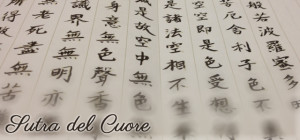 般若波羅蜜多
苦厄舍利子色不
空即是色受想
是諸法空相不生
是故空中無色
身意無色聲香
識界無無明亦
老死盡無苦
所得故
Sutra del Cuore